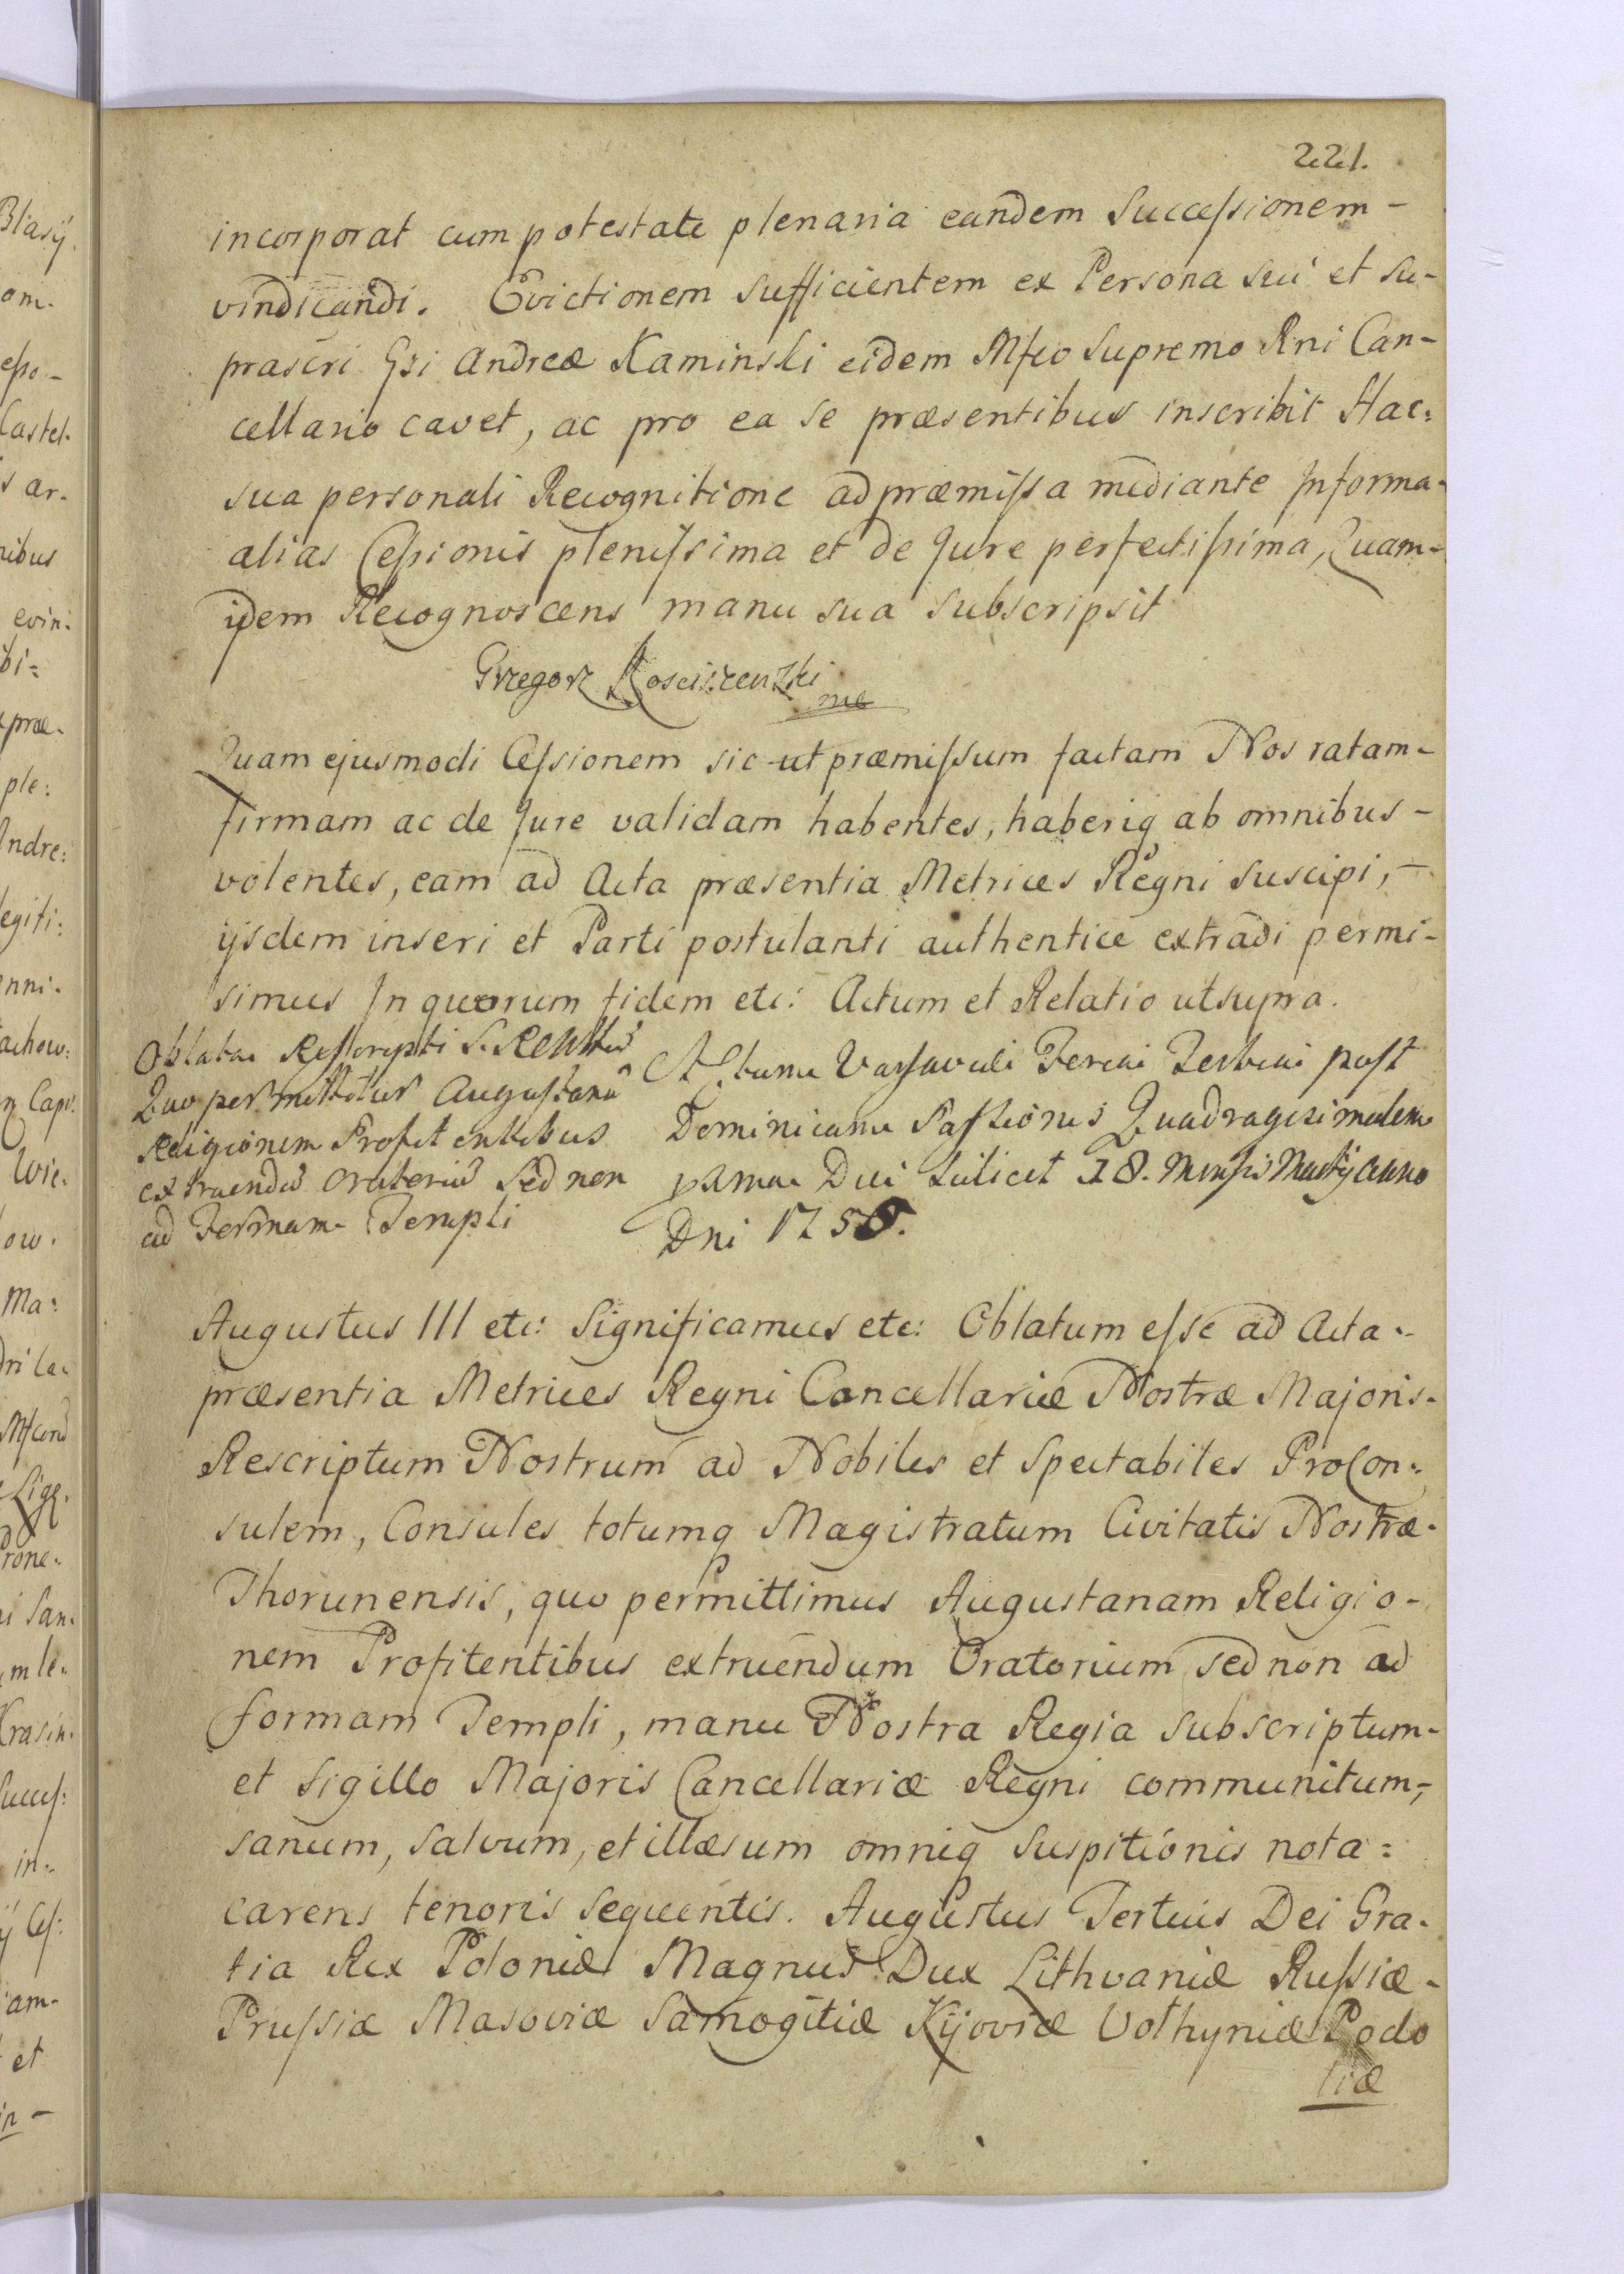 221.
incorporat cum potestate plenaria eandem Successionem -
vindicandi. Evictionem sufficientem ex Persona sui et su-
prascri Gsi Andreæ Kaminski eidem Mfco Supremo Rni Can-
cellario cavet, ac pro ea se præsentibus inscribit Hac:
sua personali Recognitione ad præmissa mediante Informa-
alias Cessionis plenissima et de Jure perfectissima, Quam-
idem Recognoscens manu sua subscripsit
Grzegorz Kosciszewski
mp
Quam ejusmodi Cessionem sic ut præmissum factam Nos ratam-
firmam ac de Jure validam habentes, haberiq ab omnibus -
volentes, eam ad Acta præsentia Metrices Regni suscipi, -
ijsdem inseri et Parti postulanti authentice extradi permi-
simus In quorum fidem etc: Actum et Relatio ut supra.
Oblata Rescripti S. R. Mttis
Quo permittitur Augustanã
Religionem Profitentibus
extruendũ Oratoriũ sed non
ad Formam Templi
Actum Varsaviæ Feria Tertia post
Dominicam Passionis Quadragesimalem
pxma Die scilicet 18. Mensis Martij Anno
Dni 1755.
Augustus III etc: Significamus etc: Oblatum esse ad Acta -
præsentia Metrices Regni Cancellariæ Nostræ Majoris -
Rescriptum Nostrum ad Nobiles et Spectabiles ProCon-
sulem, Consules totumq Magistratum Civitatis Nostræ -
Thorunensis, quo permittimus Augustanam Religio-
nem Profitentibus extruendum Oratorium sed non ad
formam Templi, manu Nostra Regia subscriptum -
et Sigillo Majoris Cancellariæ Regni communitum, -
sanum, salvum, et illæsum omniq suspitionis nota =
carens tenoris sequentis. Augustus Tertius Dei Gra-
tia Rex Poloniæ Magnus Dux Lithvaniæ Russiæ -
Prussiæ Masoviæ Samogitiæ Kijoviæ Volhyniæ Podo
liæ